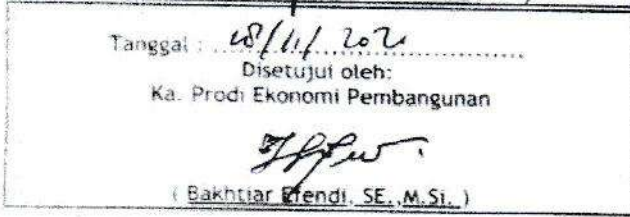 Tanggal : 18/11/2021
Disetujui oleh:
Ka. Prodi Ekonomi Pembangunan
( Bakhtiar Efendi, SE.,M.Si. )